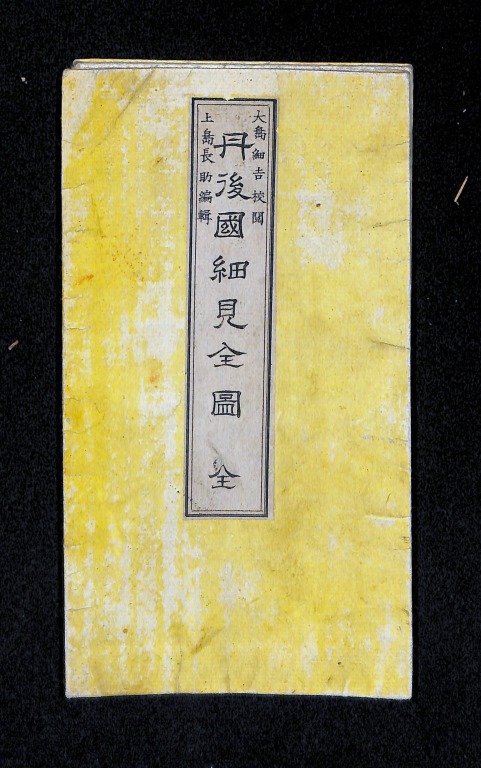 大島細吉校閲
丹後國細見全圖 全
上島長助編輯